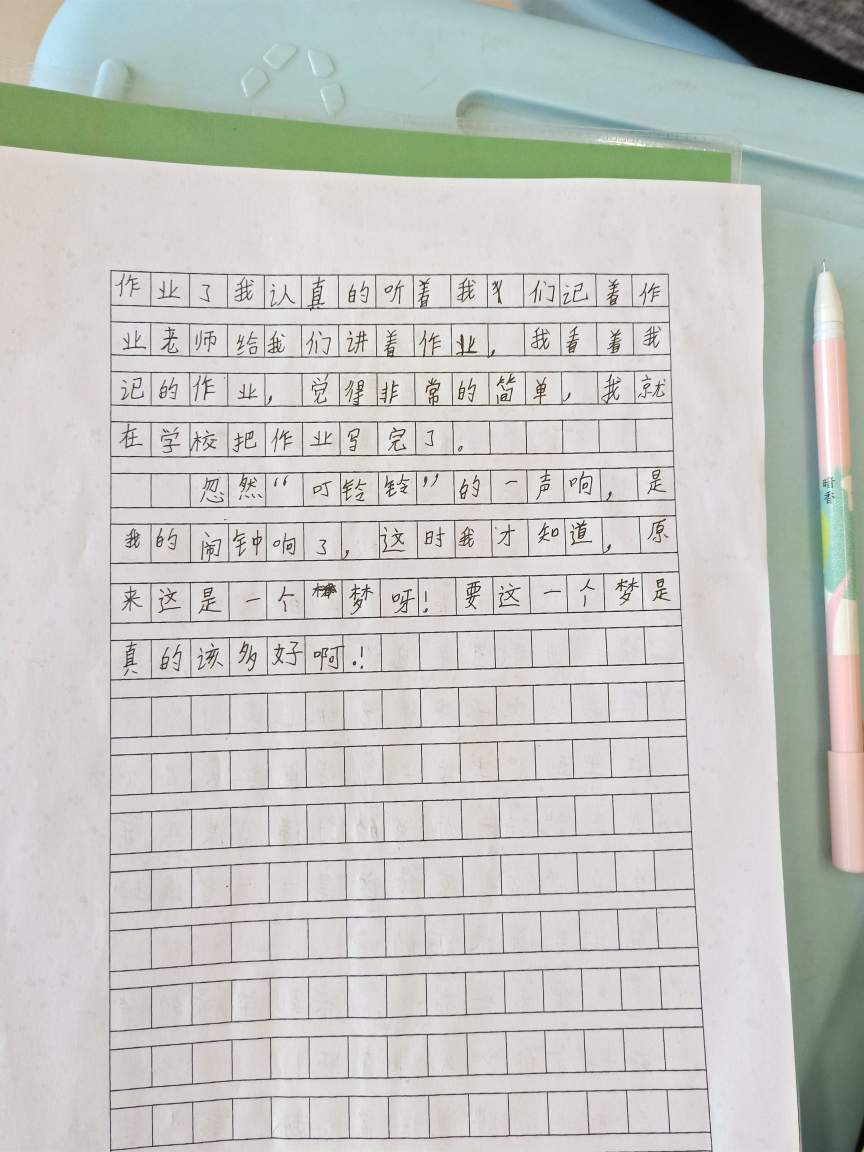 作业了我认真的听着我们记着作
业老师给我们讲着作业，我看着我
记的作业，觉得非常的简单，我就
在学校把作业写完了。
忽然“叮铃铃”的一声响，是
我的闹钟响了，这时我才知道，原
来这是一个梦呀！要这一个梦是
真的该多好啊.！
暗香